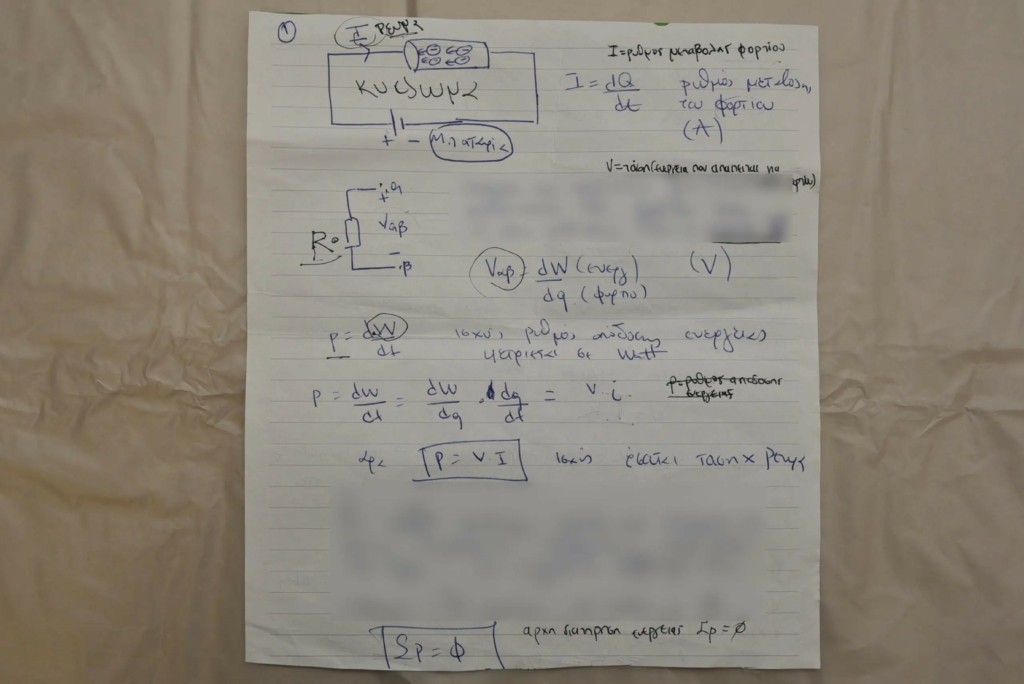 1
I ρευμα
I = ρυθμος μεταβολης φορτιου
κυκλωμα
I = dQ/dt ρυθμός μεταβολης
του φορτιου
(A)
+ - Μπαταρία
V = ταση (ενεργεια που απαιτειται να
α
+
Vαβ
R
-
β
Vαβ = dW (ενεργ) / dq (φορτιου) (V)
p = dW/dt ισχύς ρυθμός απόδοσης ενεργείας
μετριεται σε Watt
p = dW/dt = dW/dq · dq/dt = v i
p = ρυθμος αποδοσης
ενεργειας
αρα p = v I ισχύς ταση x ρευμα
Σp = φ
αρχη διατηρηση ενεργειας Σp = φ